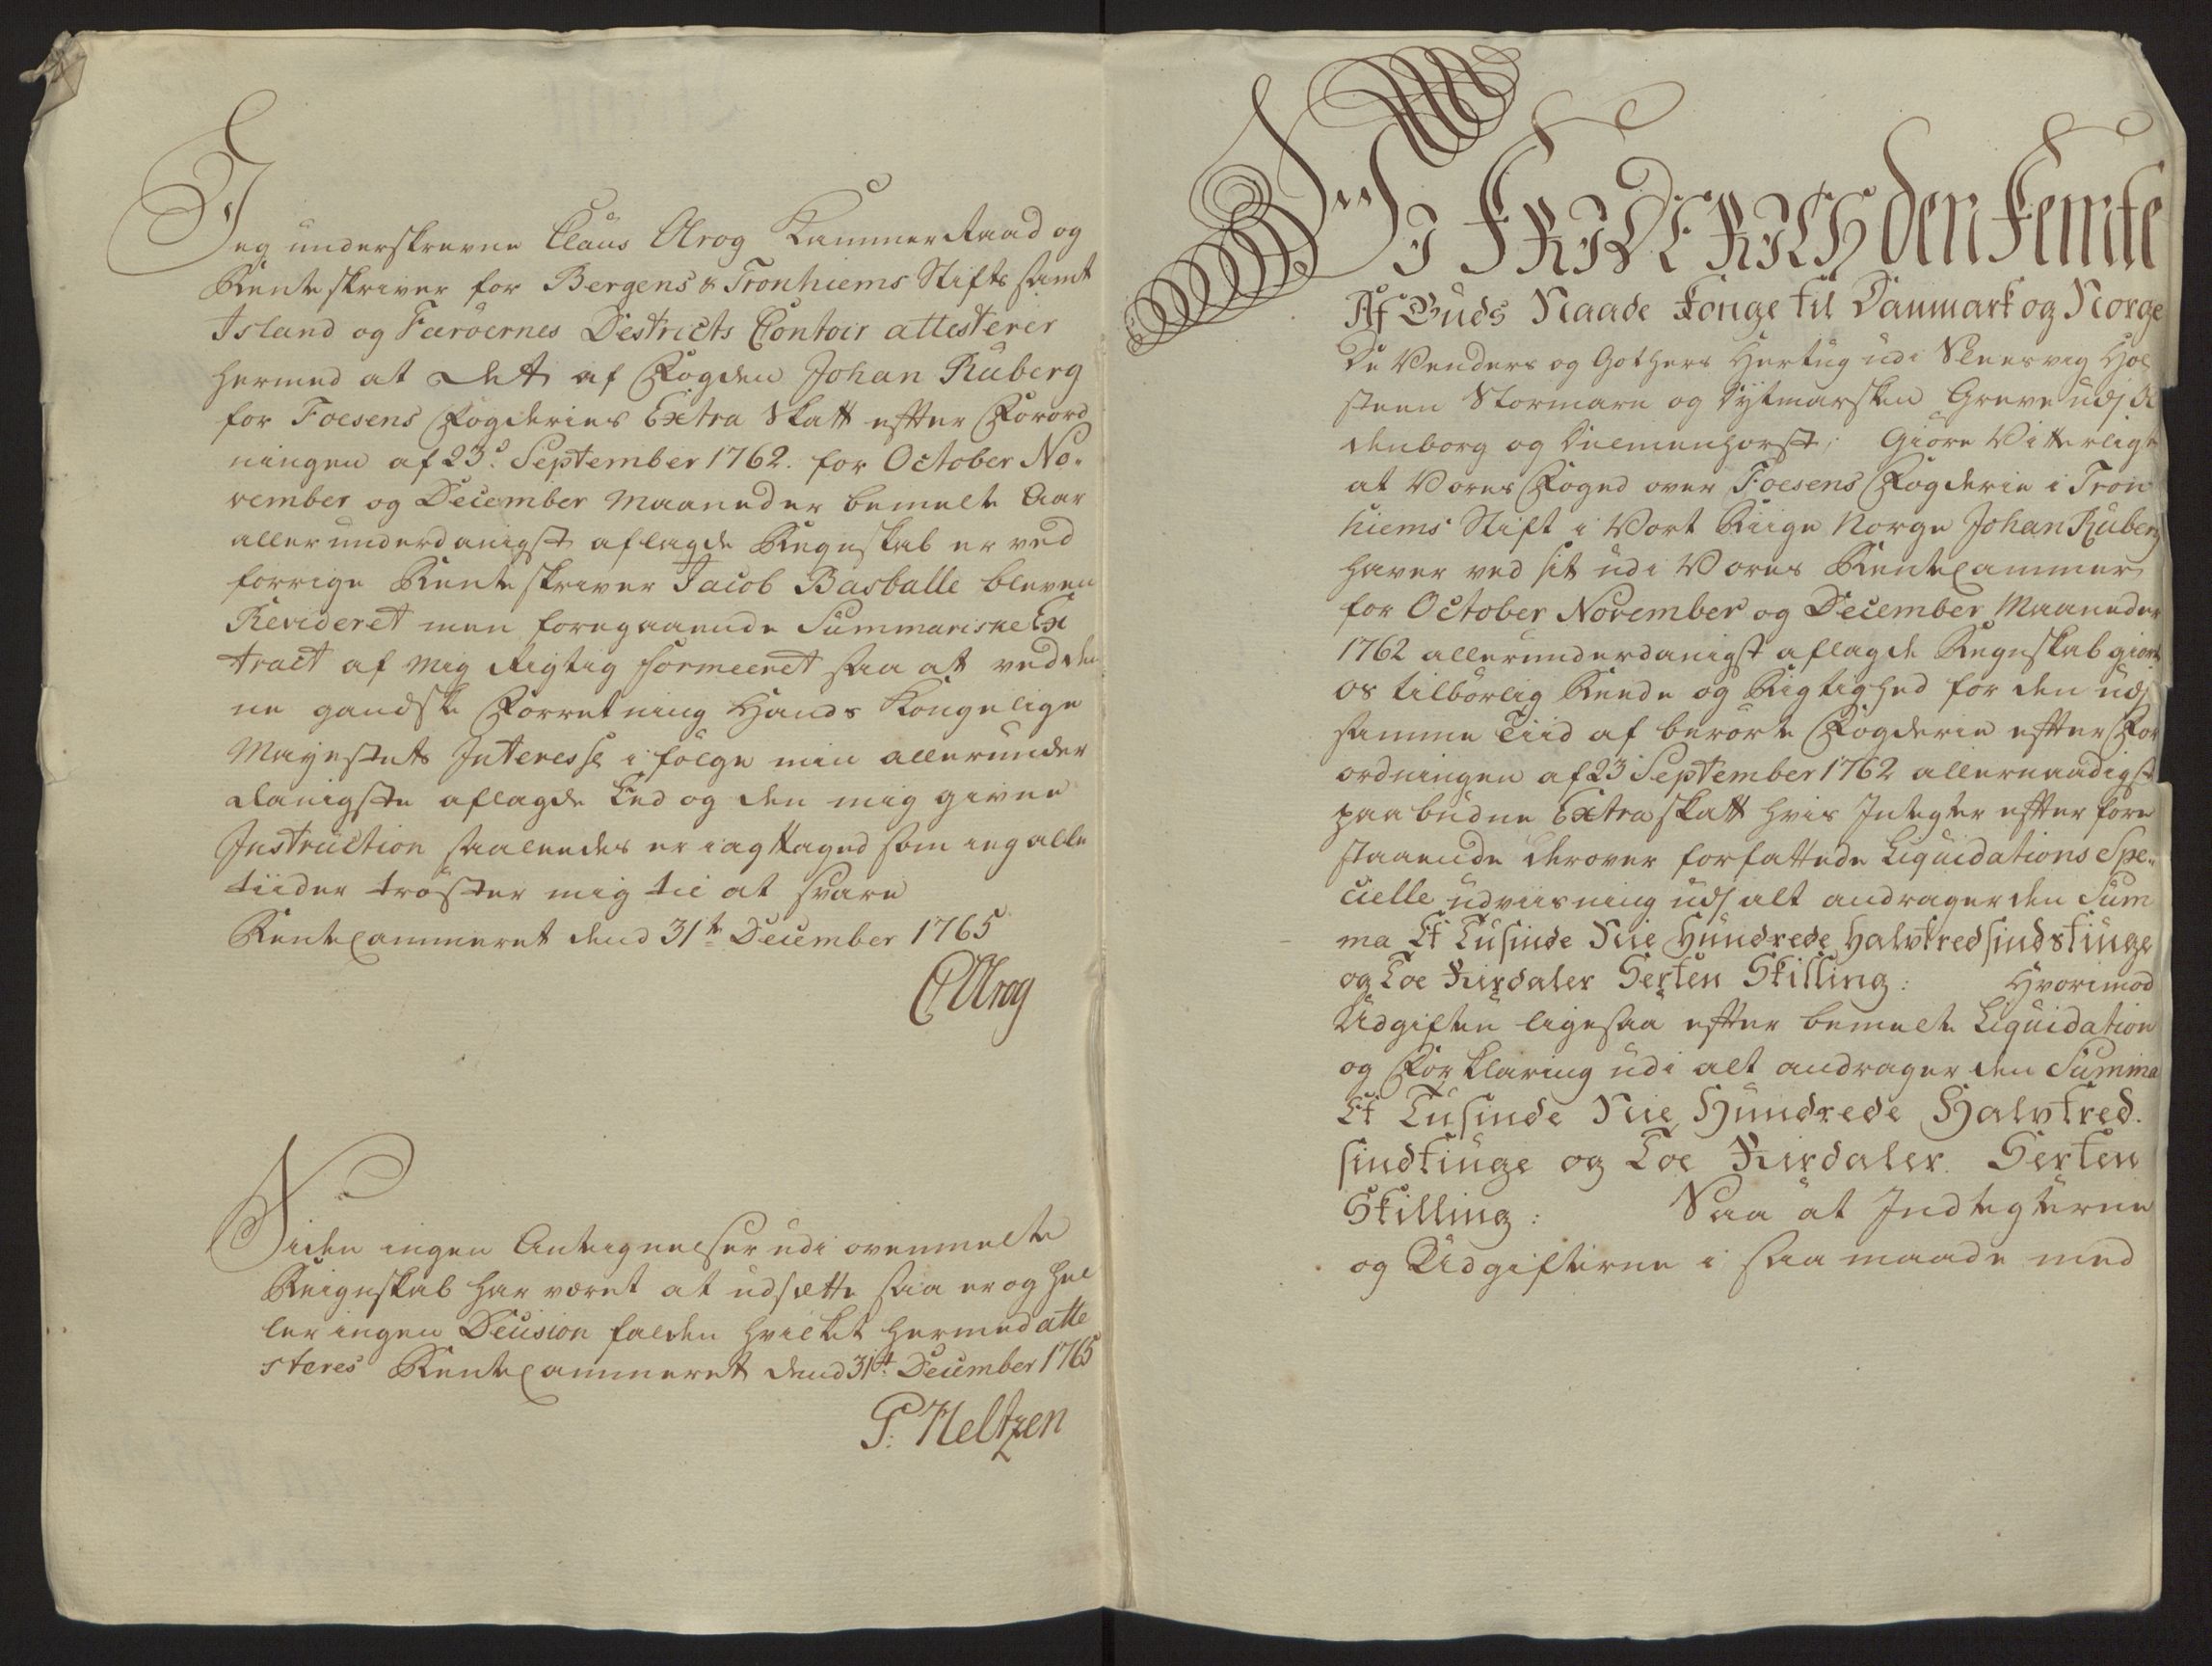 Jeg underskrevne Claus Olrog Kammer Raad og
Renteskriver for Bergens & Tronhiems Stifts samt
Island og Færöernes Districts Contoir attesterer
hermed at det af Fogden Johan Ruberg
for Foesens Fogderies Extra Skatt efter Forord
ningen af 23de September 1762. for October No-
vember og December Maaneder bemelte Aar
allerunderdanigst aflagde Regnskab er ved
forrige Renteskriver Jacob Basballe bleven
Revideret men foregaaende Summariske Ex
tract af mig Rigtig formeeret saa at ved den
ne gandske Forretning Hands Kongelige
Mayestets Interesse i følge min allerunder
danigste aflagde Eed og den mig givne
Instruction saaledes er iagttaged som ieg alle
tiider trøster mig til at svare
RenteCammeret dend 31te December 1765
COlrog
Siden ingen Antegnelser udi ovenmelte
Reignskab har været at udsætte saa er og hel
ler ingen Decision falden hvilket hermed atte
steres RenteCammeret dend 31te December 1765
P: Heltzen
Wi FRIDERICH den Femte
Af Guds Naade Konge til Danmark og Norge
De Venders og Gothers Hertug udi Slesvig Hol
steen Stormarn og Dytmarsken Greve udj Ol
denborg og Delmenhorst; Giöre Vitterligt
at Vores Foged over Foesens Fogderie i Tron
hiems Stift i Vort Riige Norge Johan Ruberg
haver ved sit udi Vores RenteCammer
for October November og December Maaneder
1762 allerunderdanigst aflagde Regnskab giort
os tilbörlig Reede og Rigtighed for den udj
samme Tiid af berörte Fogderie efter For
ordningen af 23 September 1762 allernaadigst
paabudne Extraskatt hvis Indtegter efter fore
staaende derover forfattede Liquidations Spe-
cielle udviisning udj alt andrager den Sum
ma Et Tusinde Nie Hundrede Halvtredsindstiuge
og Toe Rixdaler Sexten Skilling: Hvorimod
Udgiften ligesaa efter bemelte Liquidation
og Forklaring udi alt andrager den Summa
Et Tusinde Nie Hundrede Halvtred-
sindtiuge og Toe Rixdaler Sexten
Skilling: Saa at Indtegterne
og Udgifterne i saa maade med